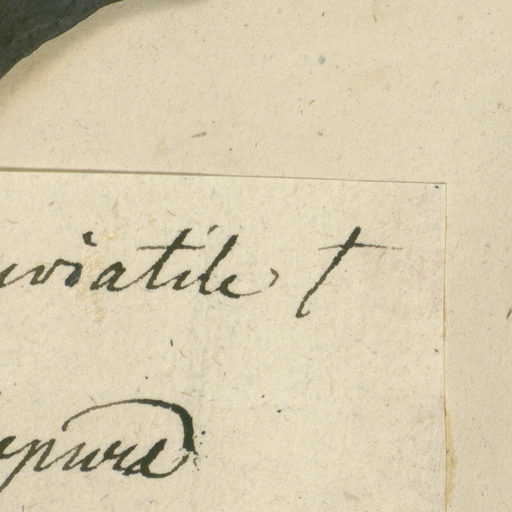 uviatile †
epura